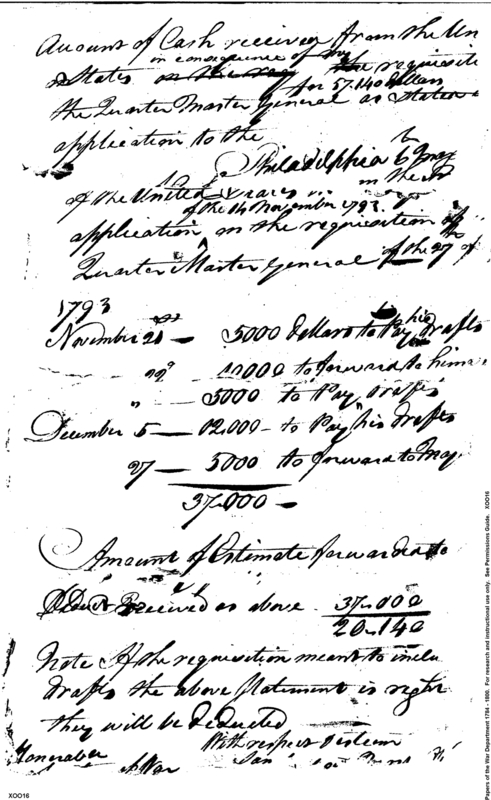 Amount of Cash received from the Un
States in consequence of my requisite
for 57.140 dollars
the Quarter Master General as stated
application to the
Philadelphia
of the United States in the
of the 14 November 1793
application on the requisition of
Quarter Master General of the 27 of
1793
November 20 — 5000 dollars to Pay his drafts
10000 to forward to him
" 5000 to Pay drafts
December 5 — 12.000 — to Pay his drafts
27 — 5000 to forward to
37.000 —
Amount of Estimate forwarded to
Deduct Received as above 37.000
20.140
Note If the requisition meant to inclu
drafts the above Statement is right
they will be deducted
With respect & esteem
Honorable
of War
Papers of the War Department 1784 - 1800. For research and instructional use only. See Permissions Guide. XOO16
XOO16